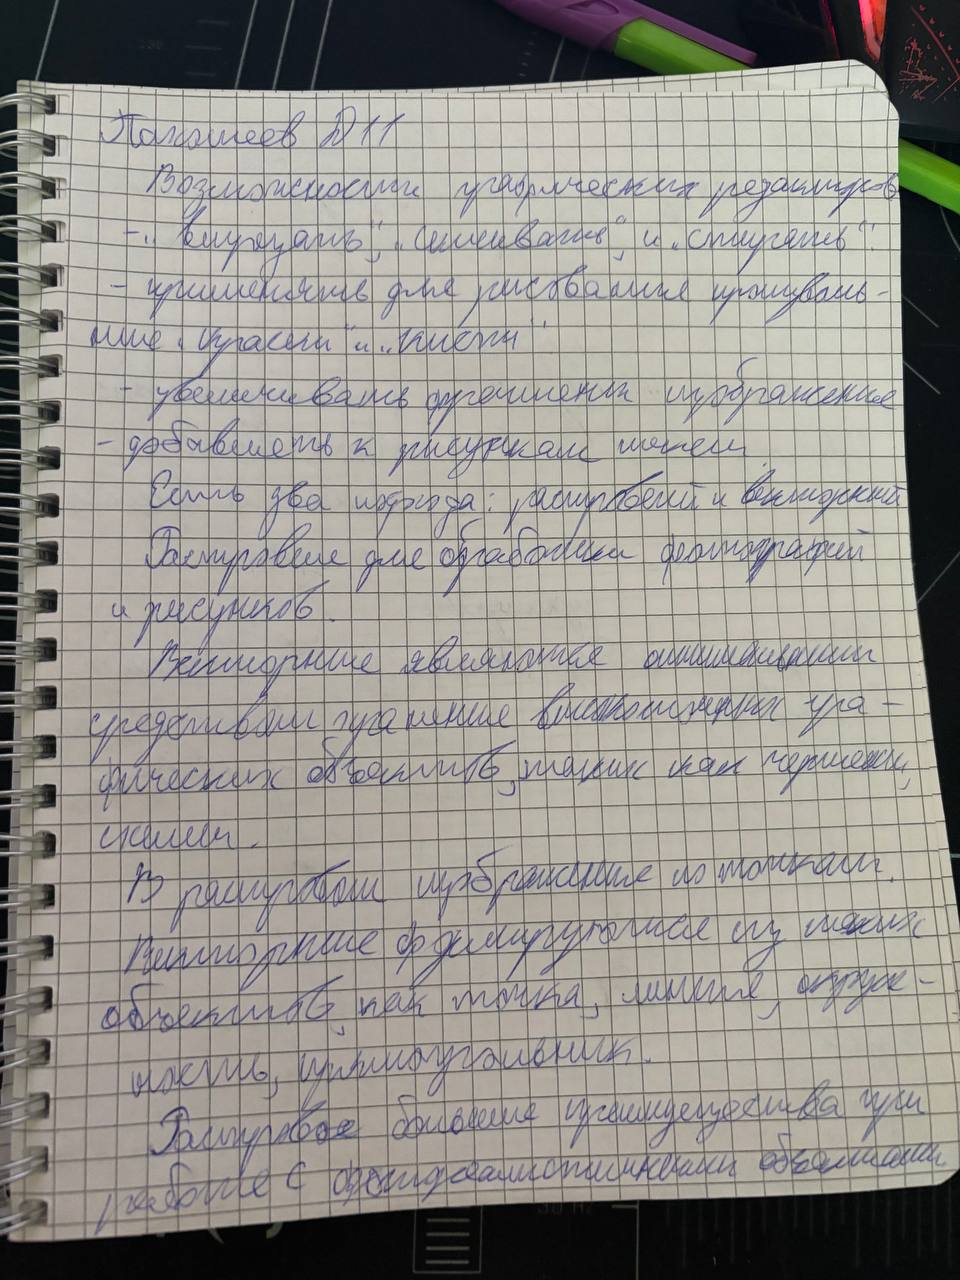 Д11
Возможности графических редакторов
- „вырезать", „склеивать", и „стирать".
- применять для рисования произволь-
ные „краски" и „кисти"
- увеличивать фрагменты изображения
- добавлять к рисункам текст.
Есть два подхода: растровый и векторный
Растровые для обработки фотографий
и рисунков.
Векторные являются оптимальным
средством хранения высокоточных гра-
фических объектов, таких как чертежи,
схемы.
В растровом изображение по точкам.
Векторные формируются из таких
объектов, как точка, линия, окруж-
ность, прямоугольник.
Растровое большие преимущества при
работе с фотореалистичными объектами